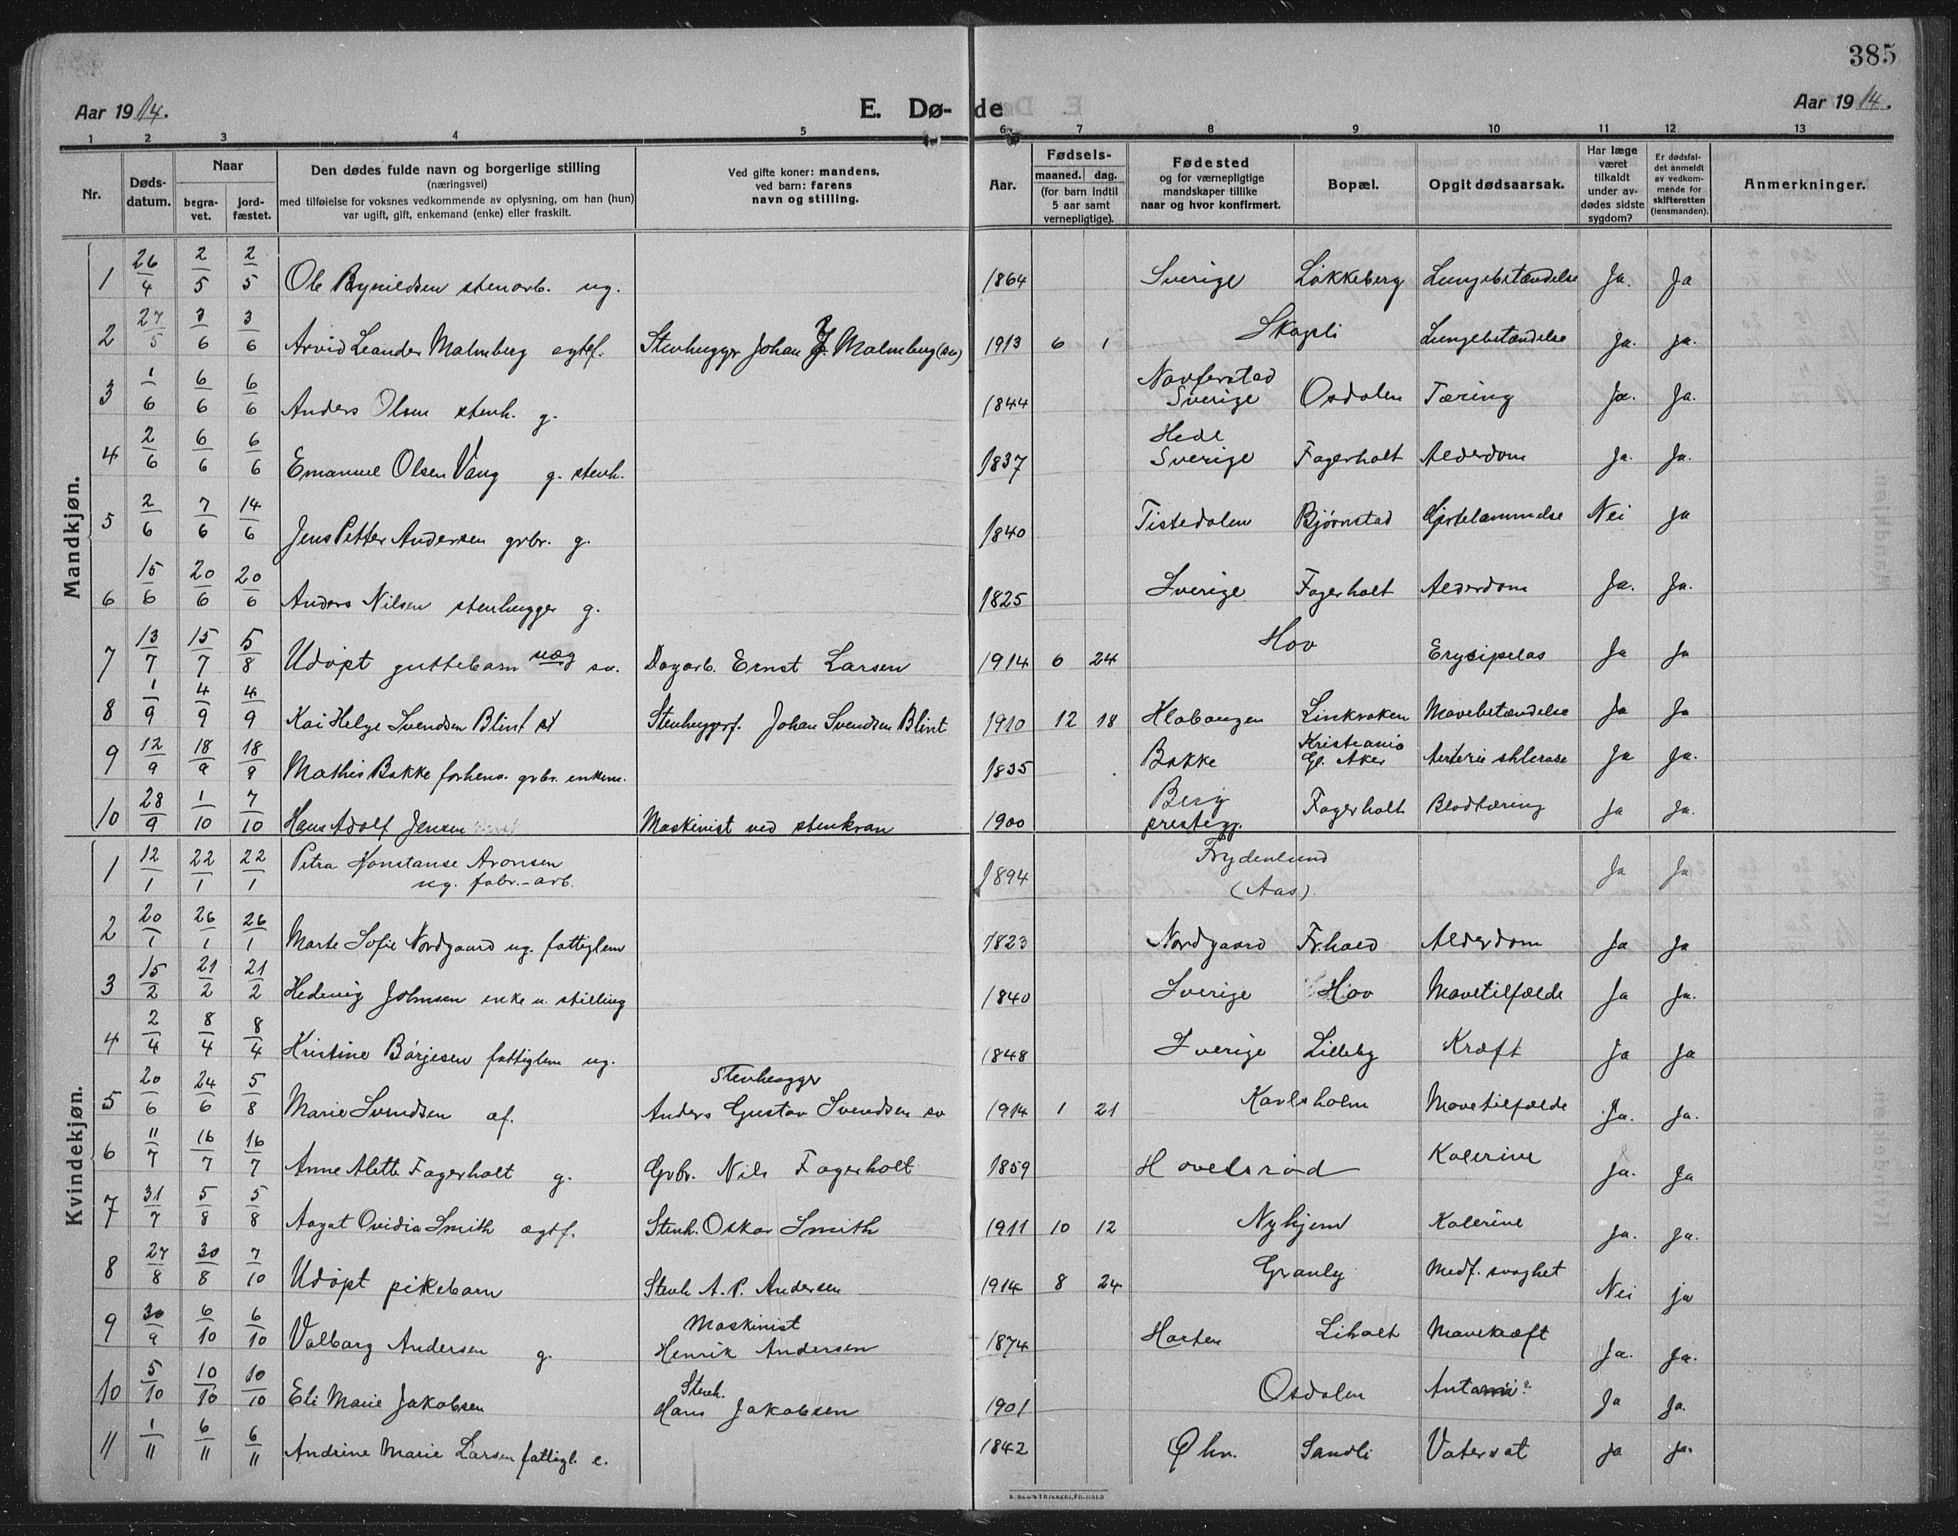 385
Aar 1914. E. Dø-de Aar 1914.
1 2 3 4 5 6 7 8 9 10 11 12 13
Nr. Døds-datum. Naar begra-vet. jord-fæstet. Den dødes fulde navn og borgerlige stilling (næringsvei) med tilføielse for voksnes vedkommende av oplysning, om han (hun) var ugift, gift, enkemand (enke) eller fraskilt. Ved gifte koner: mandens, ved barn: farens navn og stilling. Aar. Fødsels- maaned. dag. (for barn indtil 5 aar samt vernepligtige). Fødested og for værnepligtige mandskaper tillike naar og hvor konfirmert. Bopæl. Opgit dødsaarsak. Har læge været tilkaldt under av-dødes sidste sygdom? Er dødsfal-det anmeldt av vedkom-mende for skifteretten (lensmanden). Anmerkninger.
Mandkjøn.
1 26/4 2/5 2/5 Ole Bynildsen stenarb. ug. 1864 Sverige Løkkeberg Lungebetændelse Ja. Ja
2 27/5 3/6 3/6 Arvid Leander Malmberg egtf. Stenhugger Johan Malmberg (sv) 1913 6 1 Skogli Lungebetændelse Ja. Ja.
3 1/6 6/6 6/6 Anders Olsen stenh. g. 1844 Navferstad Sverige Osdalen Tæring Ja. Ja.
4 2/6 6/6 6/6 Emanuel Olsen Vang g. stenh. 1837 Hede Sverige Fagerholt Alderdom Ja. Ja.
5 2/6 7/6 14/6 Jens Petter Andersen grbr. g. 1840 Tistedalen Bjørnstad Hjertelammelse Nei Ja
6 15/6 20/6 20/6 Anders Nilsen stenhugger g. 1825 Sverige Fagerholt Alderdom Ja. Ja.
7 13/7 15/7 5/8 Udøpt guttebarn uæg sv. Dagarb. Ernst Larsen 1914 6 24 Hov Erysipelas Ja Ja
8 1/9 4/9 4/9 Kai Helge Svendsen Blint Stenhuggerf. Johan Svendsen Blint 1910 12 18 Klabaugen Linkroken Mavebetændelse Ja Ja
9 12/9 18/9 18/9 Mathis Bakke forhenv. grbr. enkem. 1835 Bakke Kristiania Gl. Aker Arterie sklerose Ja Ja.
10 28/9 1/10 7/10 Hans Adolf Jensen Maskinist ved stenkran 1900 Berg prestegj. Fagerholt Blodtæring Ja Ja.
Kvindekjøn.
1 12/1 22/1 22/1 Petra Konstanse Aronsen ug. fabr.-arb. 1894 Frydenlund (Aas). Ja Ja
2 20/1 26/1 26/1 Marte Sofie Nordgaard ug. fattiglem 1823 Nordgaard Fr.hald Alderdom Ja Ja
3 15/2 21/2 21/2 Hedevig Johnsen enke u. stilling 1840 Sverige Hov Mavetilfælde Ja Ja.
4 2/4 8/4 8/4 Kristine Børjesen fattiglem ug. 1848 Sverige Lilleby Kræft Ja Ja
5 20/6 24/6 5/8 Marie Svendsen æf. Stenhugger Anders Gustav Svendsen sv 1914 1 21 Karlsholm Mavetilfælde Ja. Ja.
6 11/7 16/7 16/7 Anne Alette Fagerholt g. Grbr. Nils Fagerholt 1859 Hovelsrød Kolerine Ja. Ja
7 31/7 5/8 5/8 Aagot Ovidia Smith egtf. Stenh. Oskar Smith 1911 10 12 Nyhjem Kolerine Ja. Ja.
8 27/8 30/8 7/10 Udøpt pikebarn Stenh A. P. Andersen 1914 8 24 Granly Medf. svaghet Nei ja
9 30/9 6/10 6/10 Valborg Andersen g. Maskinist Henrik Andersen 1874 Horten Liholt Mavekræft Ja. Ja.
10 5/10 10/10 10/10 Eli Marie Jakobsen Stenh. Hans Jakobsen 1901 Osdalen Ja Ja.
11 1/11 6/11 6/11 Andrine Marie Larsen fattigl. e. 1842 Øhn. Sandli Vatersot Ja Ja.